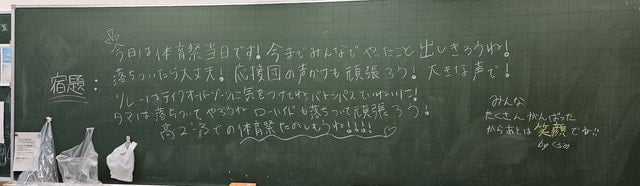 宿題：
今日は体育祭当日です！今までみんなでやったこと出しきろうね！
落ちついたら大丈夫！応援団の声かけも頑張ろう！大きな声で！
リレーはテイクオーバーゾーンに気をつけてね バトンパスていねいに！
タマは落ちついてやろうね ロープも落ちついて頑張ろう！
高2 での体育祭たのしもうね！！！！
みんな
たくさんがんばった
からあとは笑顔でね!!
by